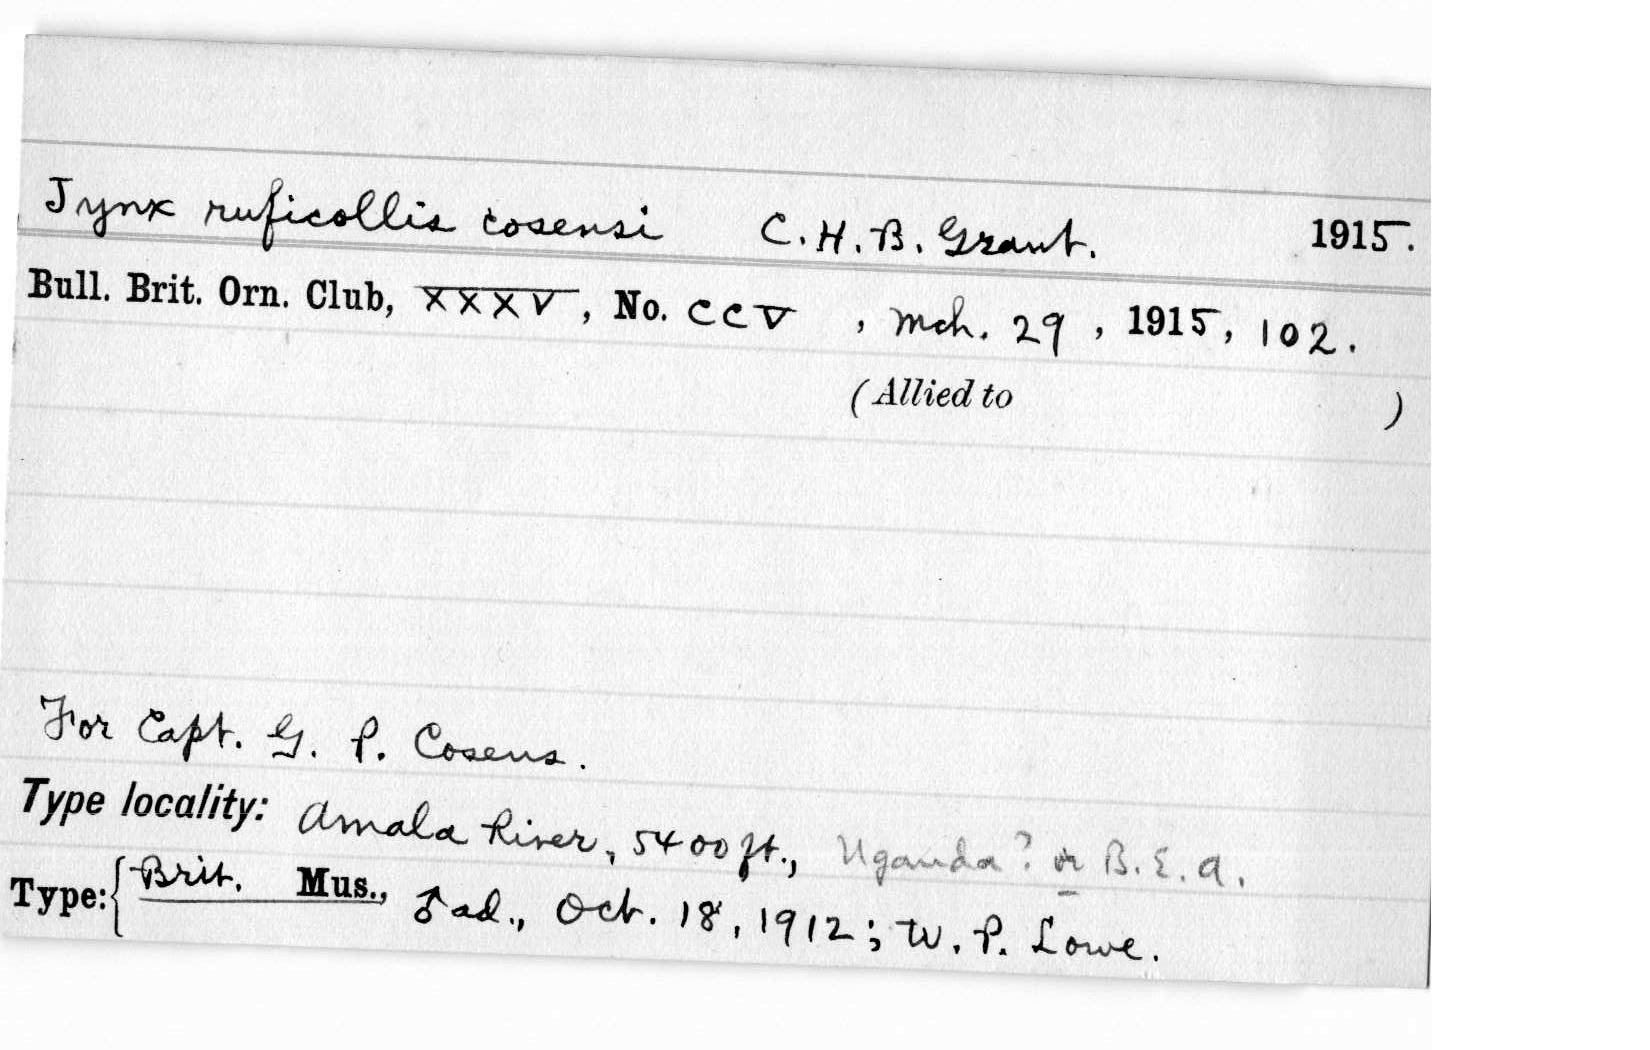 Jynx ruficollis cosensi C. H. B. Grant. 1915.
Bull. Brit. Orn. Club, XXXV, No. CCV, Mch. 29, 1915, 102.
(Allied to )
For Capt. G. P. Cosens.
Type locality: Amala River, 5400 ft., Uganda? or B. E. A.
Type: { Brit. Mus., ♂ ad., Oct. 18, 1912; W. P. Lowe.